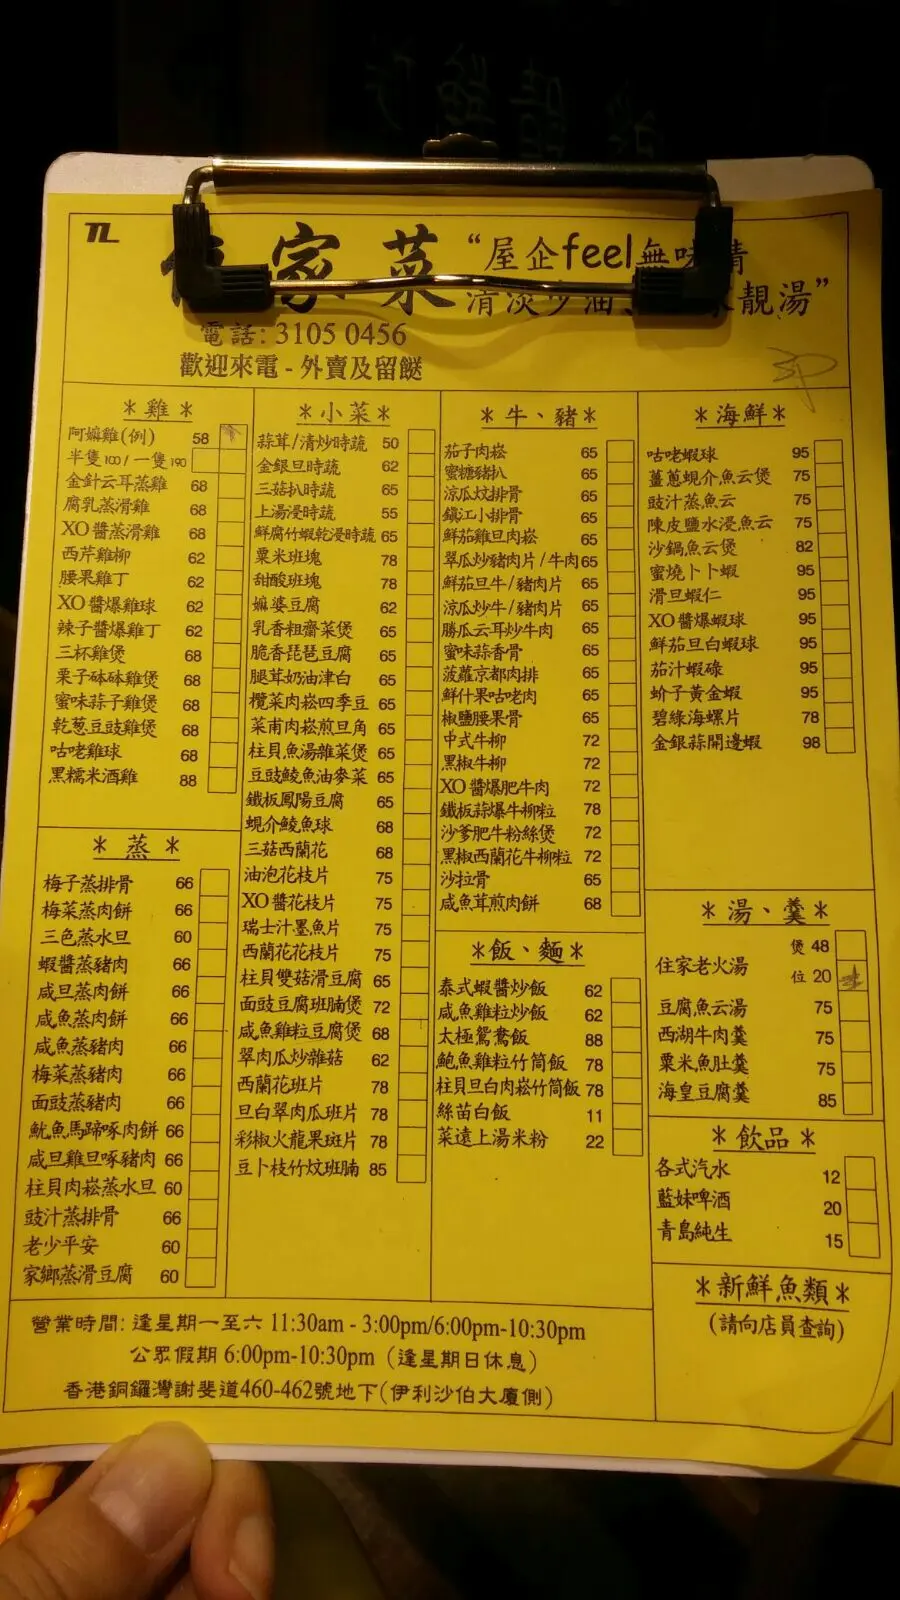 TL
家菜
“屋企feel無味精
清淡少油 靚湯”
電話: 3105 0456
歡迎來電 - 外賣及留餸
＊雞＊
阿嫲雞(例) 58
半隻100/一隻190
金針云耳蒸雞 68
腐乳蒸滑雞 68
XO醬蒸滑雞 68
西芹雞柳 62
腰果雞丁 62
XO醬爆雞球 62
辣子醬爆雞丁 62
三杯雞煲 68
栗子砵砵雞煲 68
蜜味蒜子雞煲 68
乾葱豆豉雞煲 68
咕咾雞球 68
黑糯米酒雞 88
＊蒸＊
梅子蒸排骨 66
梅菜蒸肉餅 66
三色蒸水旦 60
蝦醬蒸豬肉 66
咸旦蒸肉餅 66
咸魚蒸肉餅 66
咸魚蒸豬肉 66
梅菜蒸豬肉 66
面豉蒸豬肉 66
魷魚馬蹄啄肉餅 66
咸旦雞旦啄豬肉 66
柱貝肉崧蒸水旦 60
豉汁蒸排骨 66
老少平安 60
家鄉蒸滑豆腐 60
＊小菜＊
蒜茸/清炒時蔬 50
金銀旦時蔬 62
三菇扒時蔬 65
上湯浸時蔬 55
鮮腐竹蝦乾浸時蔬 65
粟米班塊 78
甜酸班塊 78
嫲婆豆腐 62
乳香粗齋菜煲 65
脆香琵琶豆腐 65
腿茸奶油津白 65
欖菜肉崧四季豆 65
菜甫肉崧煎旦角 65
柱貝魚湯雜菜煲 65
豆豉鯪魚油麥菜 65
鐵板鳳陽豆腐 65
蜆介鯪魚球 68
三菇西蘭花 68
油泡花枝片 75
XO醬花枝片 75
瑞士汁墨魚片 75
西蘭花花枝片 75
柱貝雙菇滑豆腐 65
面豉豆腐班腩煲 72
咸魚雞粒豆腐煲 68
翠肉瓜炒雜菇 62
西蘭花班片 78
旦白翠肉瓜班片 78
彩椒火龍果斑片 78
豆卜枝竹炆班腩 85
＊牛、豬＊
茄子肉崧 65
蜜糖豬扒 65
涼瓜炆排骨 65
鎮江小排骨 65
鮮茄雞旦肉崧 65
翠瓜炒豬肉片/牛肉 65
鮮茄旦牛/豬肉片 65
涼瓜炒牛/豬肉片 65
勝瓜云耳炒牛肉 65
蜜味蒜香骨 65
菠蘿京都肉排 65
鮮什果咕咾肉 65
椒鹽腰果骨 65
中式牛柳 72
黑椒牛柳 72
XO醬爆肥牛肉 72
鐵板蒜爆牛柳粒 78
沙爹肥牛粉絲煲 72
黑椒西蘭花牛柳粒 72
沙拉骨 65
咸魚茸煎肉餅 68
＊飯、麵＊
泰式蝦醬炒飯 62
咸魚雞粒炒飯 62
太極鴛鴦飯 88
鮑魚雞粒竹筒飯 78
柱貝旦白肉崧竹筒飯 78
絲苗白飯 11
菜遠上湯米粉 22
＊海鮮＊
咕咾蝦球 95
薑蔥蜆介魚云煲 75
豉汁蒸魚云 75
陳皮鹽水浸魚云 75
沙鍋魚云煲 82
蜜燒卜卜蝦 95
滑旦蝦仁 95
XO醬爆蝦球 95
鮮茄旦白蝦球 95
茄汁蝦碌 95
蚧子黃金蝦 95
碧綠海螺片 78
金銀蒜開邊蝦 98
＊湯、羹＊
煲 48
住家老火湯
位 20
豆腐魚云湯 75
西湖牛肉羹 75
粟米魚肚羹 75
海皇豆腐羹 85
＊飲品＊
各式汽水 12
藍妹啤酒 20
青島純生 15
＊新鮮魚類＊
(請向店員查詢)
營業時間: 逢星期一至六 11:30am - 3:00pm/6:00pm-10:30pm
公眾假期 6:00pm-10:30pm (逢星期日休息)
香港銅鑼灣謝斐道460-462號地下(伊利沙伯大廈側)